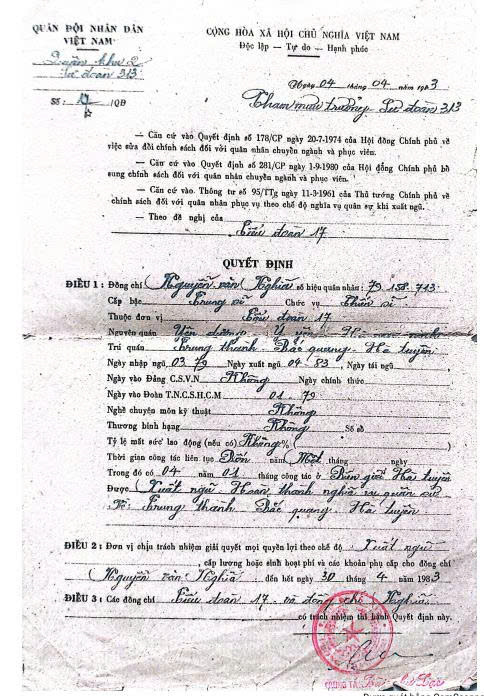 QUÂN ĐỘI NHÂN DÂN
VIỆT NAM
Quân khu 2
Sư đoàn 313
Số: 17 /QĐ
CỘNG HÒA XÃ HỘI CHỦ NGHĨA VIỆT NAM
Độc lập — Tự do — Hạnh phúc
Ngày 04 tháng 04 năm 1983
Tham mưu trưởng Sư đoàn 313
— Căn cứ vào Quyết định số 178/CP ngày 20-7-1974 của Hội đồng Chính phủ về
việc sửa đổi chính sách đối với quân nhân chuyển ngành và phục viên.
— Căn cứ vào Quyết định số 281/CP ngày 1-9-1980 của Hội đồng Chính phủ bổ
sung chính sách đối với quân nhân chuyển ngành và phục viên.
— Căn cứ vào Thông tư số 95/TTg ngày 11-3-1961 của Thủ tướng Chính phủ về
chính sách đối với quân nhân phục vụ theo chế độ nghĩa vụ quân sự khi xuất ngũ.
— Theo đề nghị của
Tiểu đoàn 17
QUYẾT ĐỊNH
ĐIỀU 1: Đồng chí Nguyễn văn Nghĩa số hiệu quân nhân: 79.158.713
Cấp bậc Trung sĩ Chức vụ Chiến sĩ
Thuộc đơn vị Tiểu đoàn 17
Nguyên quán Yên dương - Ý yên - Hà nam ninh
Trú quán Trung thành - Bắc quang - Hà tuyên
Ngày nhập ngũ 03.79 Ngày xuất ngũ 04-83, Ngày tái ngũ
Ngày vào Đảng C.S.V.N Không Ngày chính thức
Ngày vào Đoàn T.N.C.S.H.C.M 01.79
Nghề chuyên môn kỹ thuật Không
Thương binh hạng Không Số sổ
Tỷ lệ mất sức lao động (nếu có) Không %
Thời gian công tác liên tục Bốn năm Một tháng ngày
Trong đó có 04 năm 01 tháng công tác ở Biên giới Hà tuyên
Được Xuất ngũ - Hoàn thành nghĩa vụ quân sự
Về: Trung thành - Bắc quang - Hà tuyên
ĐIỀU 2: Đơn vị chịu trách nhiệm giải quyết mọi quyền lợi theo chế độ Xuất ngũ
, cấp lương hoặc sinh hoạt phí và các khoản phụ cấp cho đồng chí
Nguyễn văn Nghĩa đến hết ngày 30 tháng 4 năm 1983
ĐIỀU 3: Các đồng chí Tiểu đoàn 17 và đồng chí Nghĩa
có trách nhiệm thi hành Quyết định này.
TRUNG TÁ